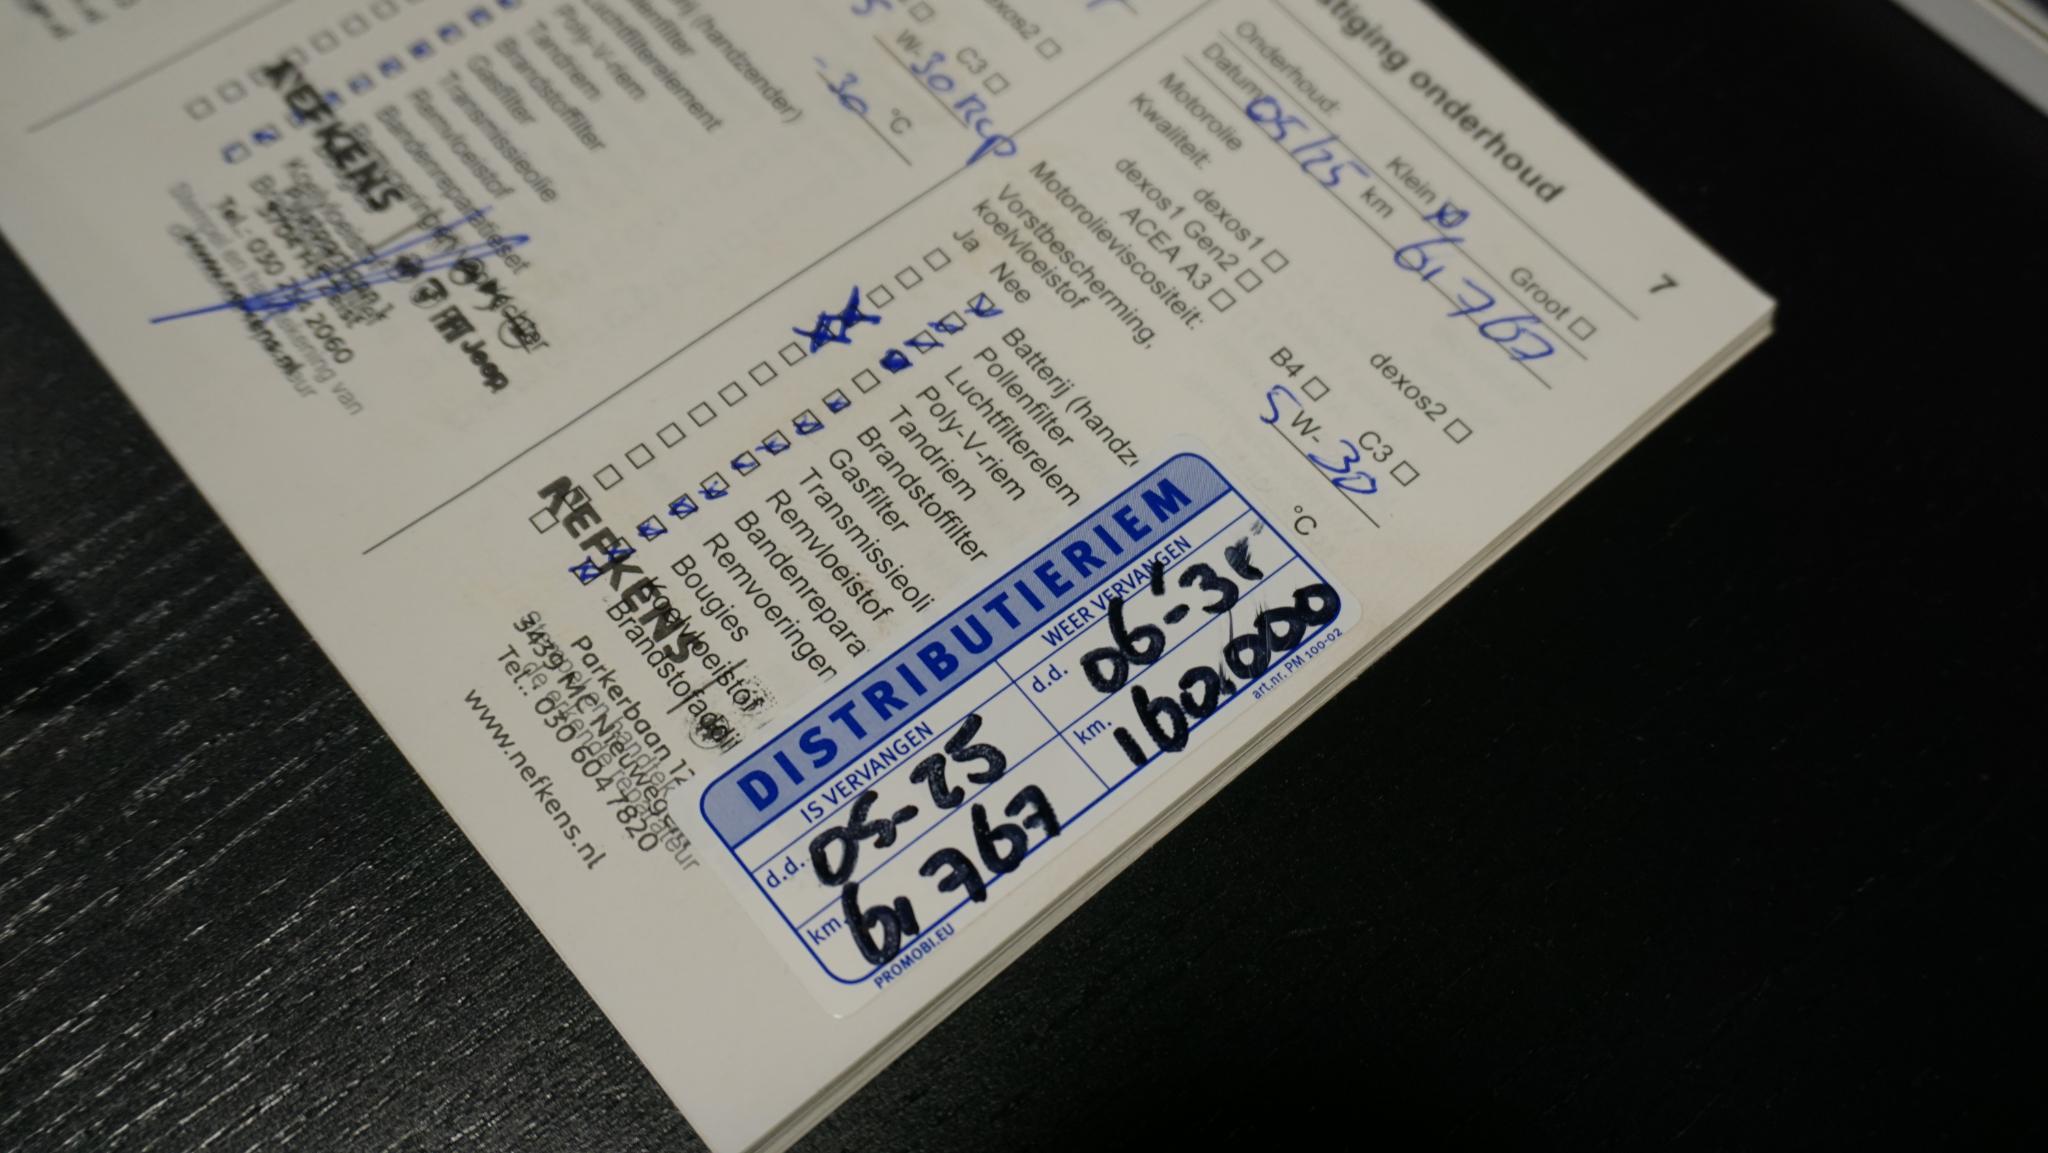 stiging onderhoud
7
Onderhoud:
Klein
Groot
Datum 05/25 km 61767
Motorolie
Kwaliteit:
dexos1
dexos2
dexos1 Gen2
B4
ACEA A3
C3
Motorolieviscositeit:
5 W- 30
Vorstbescherming,
koelvloeistof
°C
Ja
Nee
Batterij (handz
Pollenfilter
Luchtfilterelem
Poly-V-riem
Tandriem
Brandstoffilter
Gasfilter
Transmissieoli
Remvloeistof
Bandenrepara
Remvoeringen
Bougies
Koelvloeistof
Brandstofaddit
NEFKENS
Parkerbaan 12
3439 MC Nieuwegein
Tel.: 030 604 7820
www.nefkens.nl
DISTRIBUTIERIEM
IS VERVANGEN
WEER VERVANGEN
d.d. 05-25
d.d. 06-'31
km. 61767
km. 160.000
PROMOBI.EU
art.nr. PM 100-02
dexos2
C3
W-30
-30 °C
(handzender)
Poly-V-riem
Tandriem
Brandstoffilter
Gasfilter
Transmissieolie
Remvloeistof
Bandenreparatieset
NEFKENS
Tel.: 030
2060
Jeep